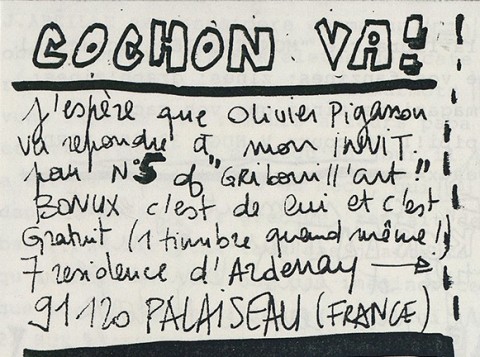 COCHON VA!
J'espère que Olivier Pigasson
va repondre à mon INVIT.
pour N°5 of "GRiboui ll'art"
BONUX c'est de lui et c'est
Gratuit (1 timbre quand même!)
7 residence d'Ardenay →
91120 PALAISEAU (FRANCE)